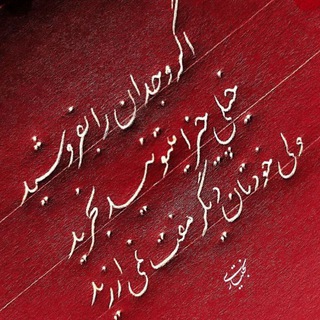 اگر وجدان را بفروشید
خیلی چیزا میتونید بخرید
ولی خودتان دیگر مفت نمی ارزید